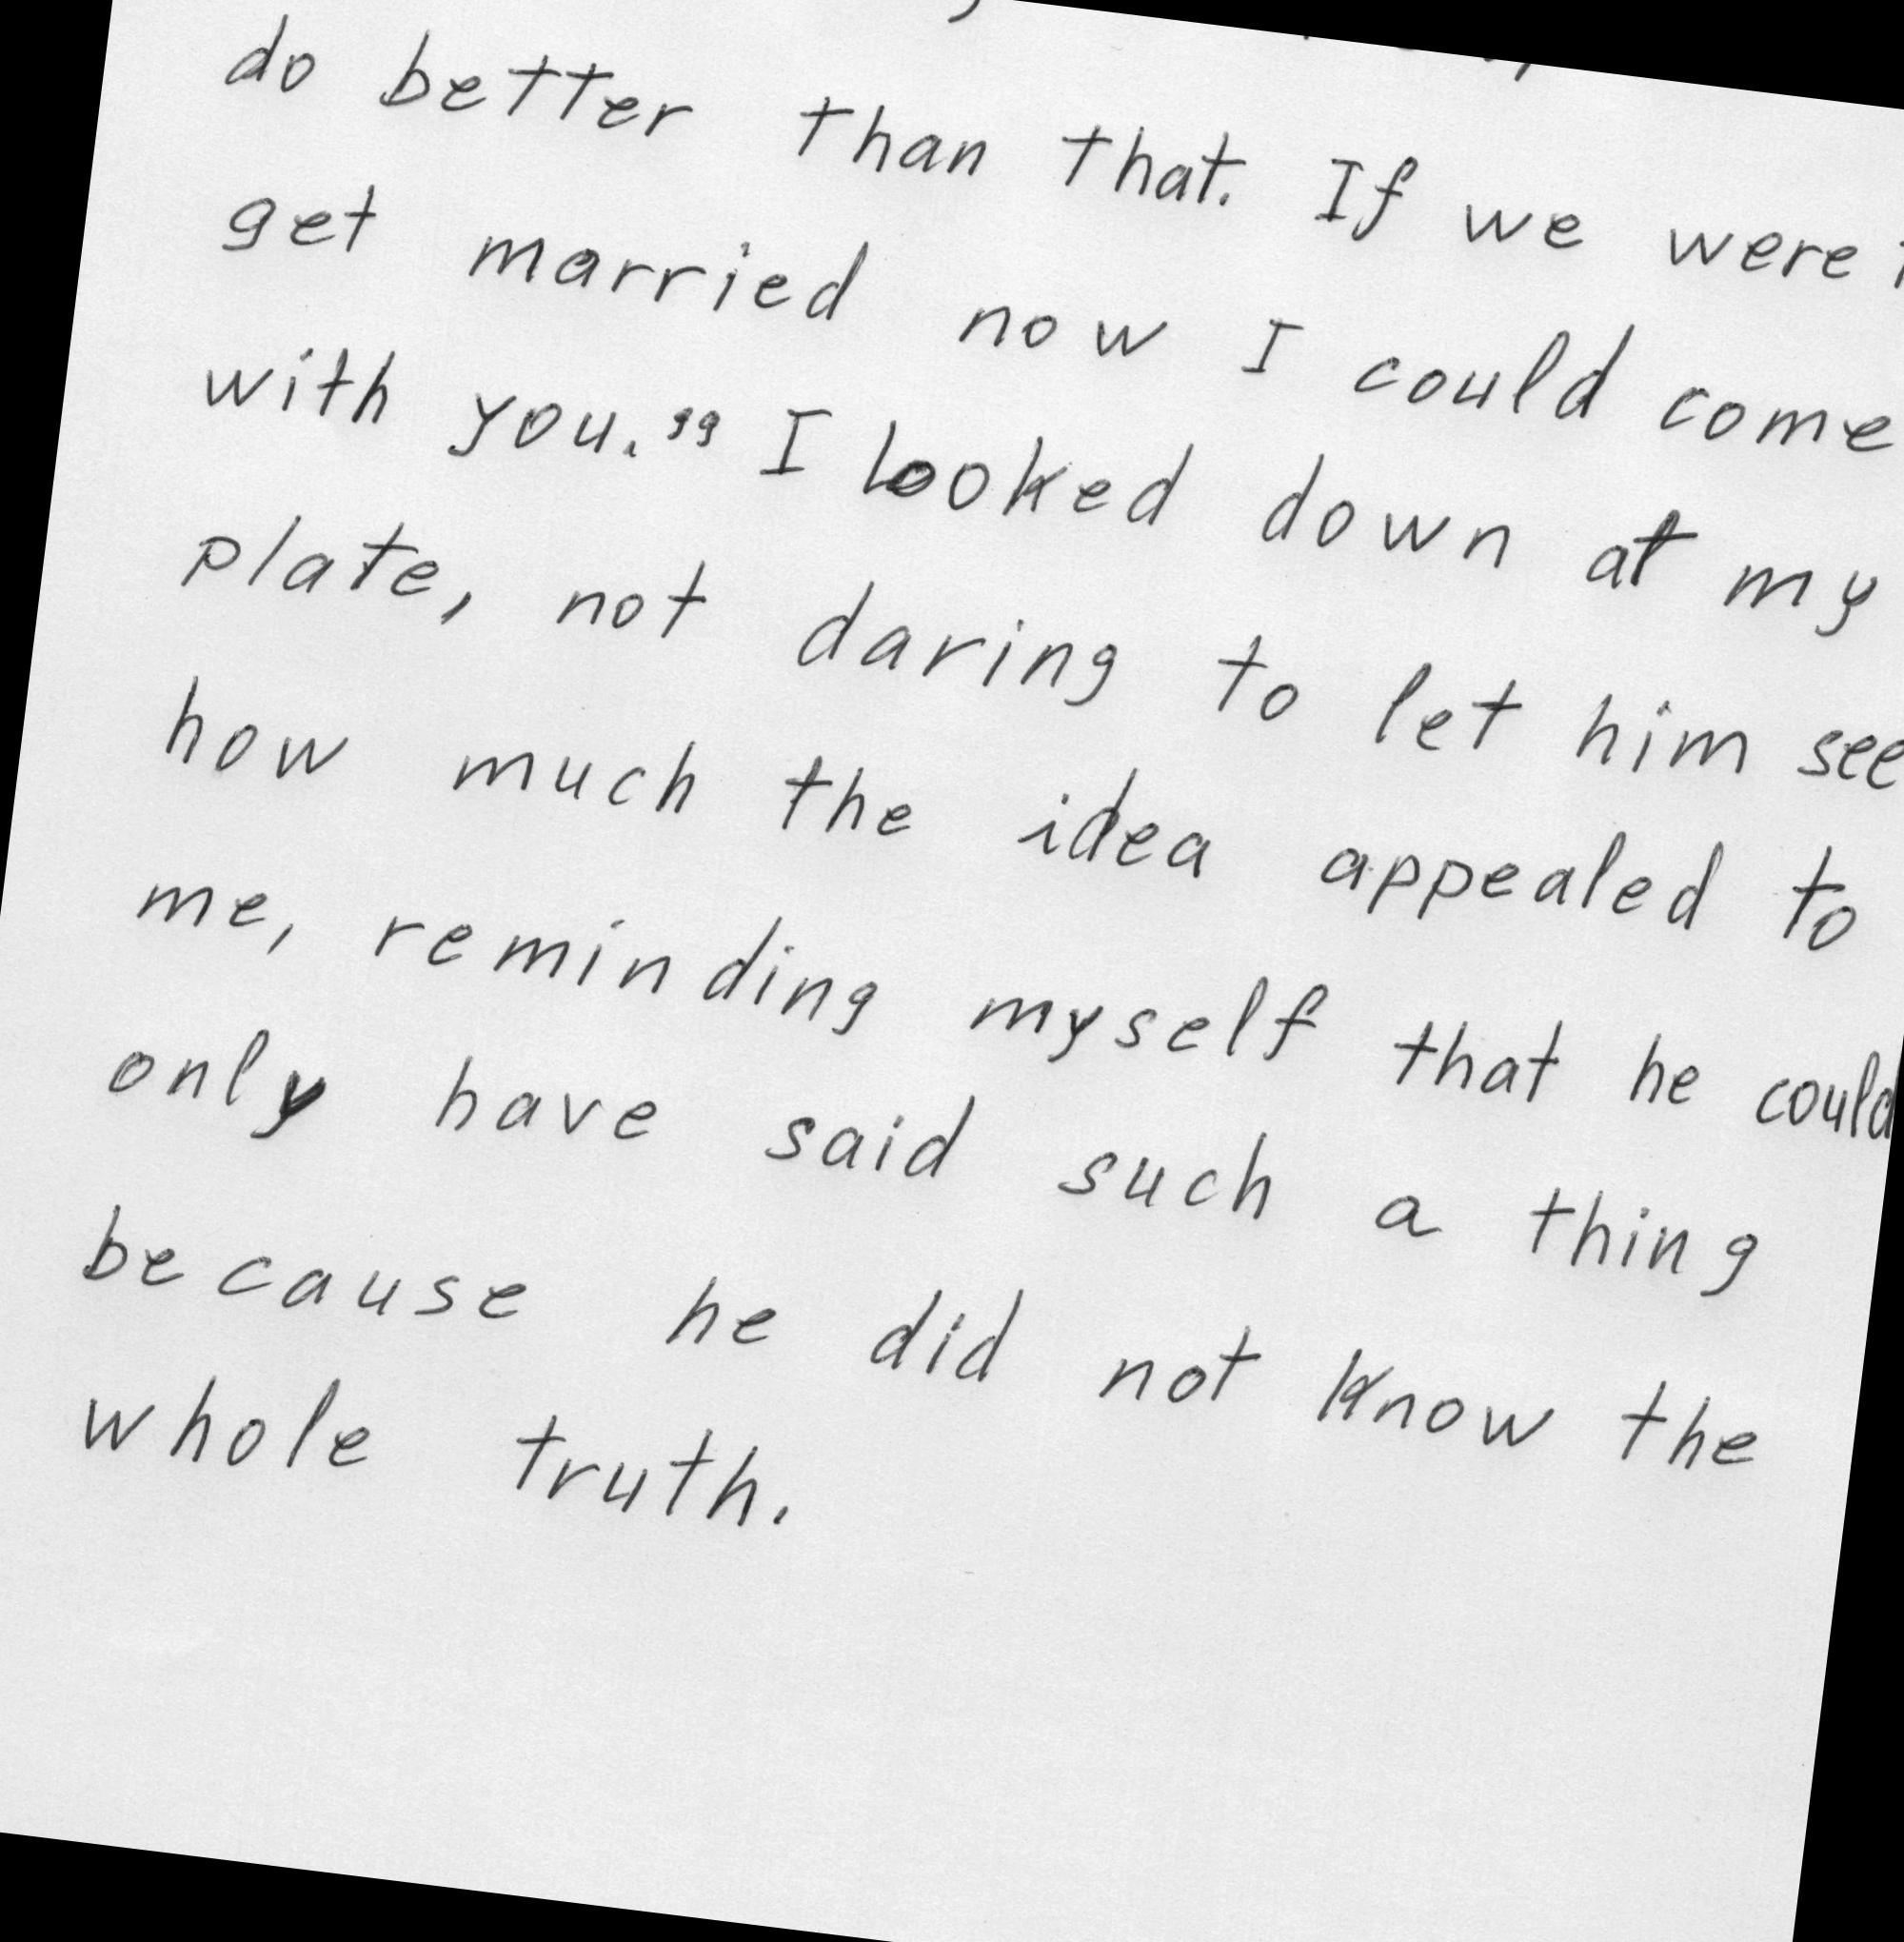 do better than that. If we were
get married now I could come
with you." I looked down at my
plate, not daring to let him see
how much the idea appealed to
me, reminding myself that he could
only have said such a thing
because he did not know the
whole truth.